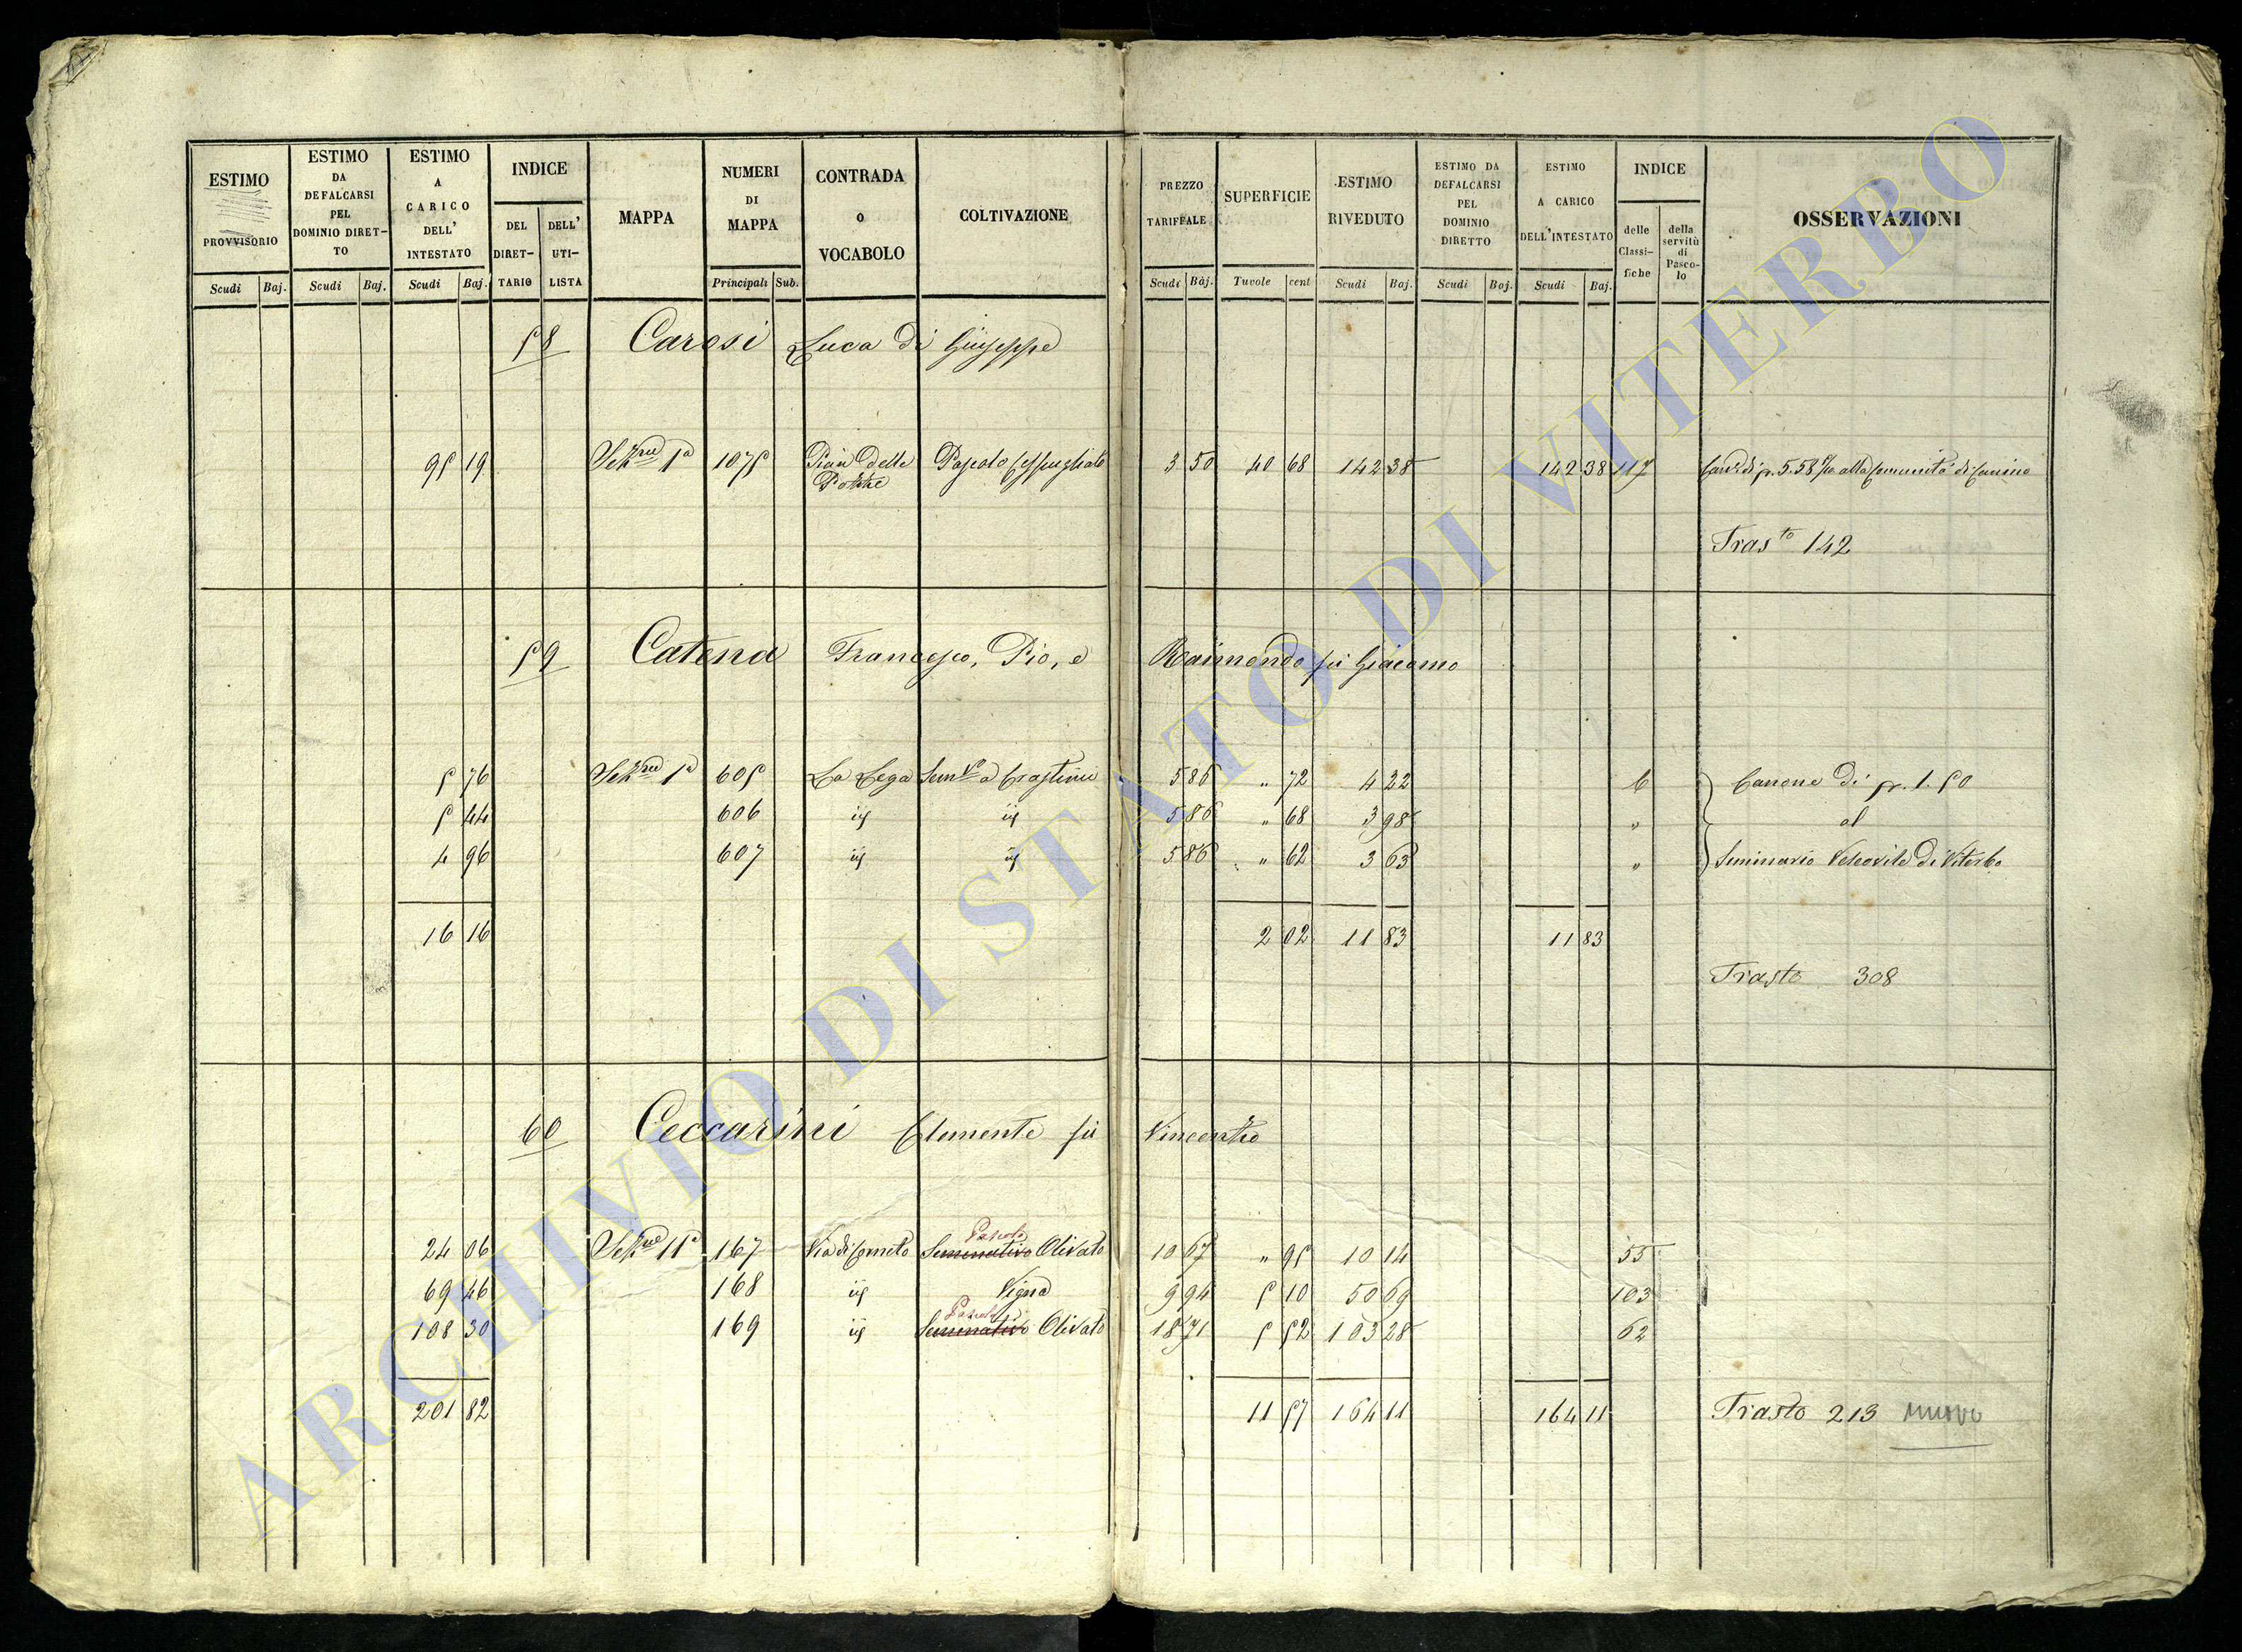 ESTIMO PROVVISORIO Scudi Baj.
ESTIMO DA DEFALCARSI PEL DOMINIO DIRET-TO Scudi Baj.
ESTIMO A CARICO DELL' INTESTATO Scudi Baj.
INDICE DEL DIRET-TARIO DELL' UTI-LISTA
MAPPA
NUMERI DI MAPPA Principali Sub.
CONTRADA o VOCABOLO
COLTIVAZIONE
PREZZO TARIFFALE Scudi Baj.
SUPERFICIE Tavole cent
ESTIMO RIVEDUTO Scudi Baj.
ESTIMO DA DEFALCARSI PEL DOMINIO DIRETTO Scudi Baj.
ESTIMO A CARICO DELL'INTESTATO Scudi Baj.
INDICE delle Classi-fiche della servitù di Pasco-lo
OSSERVAZIONI
58 Carosi Luca di Giuseppe
95 19 Sezne 1a 1075 Pian delle Pozze Pascolo cespugliato 3 50 40 68 142 38 142 38 117 Can. di p. 5.58 alla Comunità di Canino
Trasto 142
59 Catena Francesco, Pio, e Raimondo fù Giacomo
5 76 Sezne 1a 605 La Lega Semvo a 586 " 72 4 22 6 Canone di p. 1.50
5 44 606 iij iij 586 " 68 3 98 " al
4 96 607 iij iij 586 " 62 3 63 " Seminario Vescovile di Viterbo
16 16 2 02 11 83 11 83
Trasto 308
60 Ceccarini Clemente fù Vincenzo
Pascolo
24 06 Sezne 11a 167 Via di Corneto Seminativo Olivato 10 67 " 95 10 14 55
69 46 168 iij Vigna 9 94 5 10 50 69 103
Pascolo
108 30 169 iij Seminativo Olivato 18 71 5 52 103 28 62
201 82 11 57 164 11 164 11 Trasto 213 nuovo
ARCHIVIO DI STATO DI VITERBO